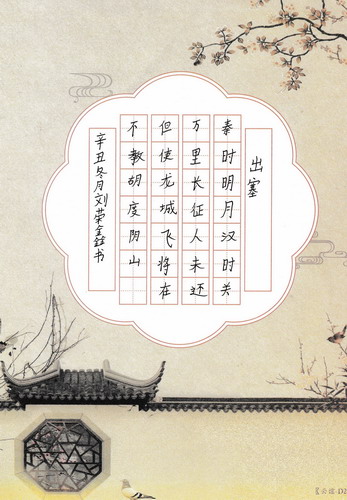 出塞
秦时明月汉时关
万里长征人未还
但使龙城飞将在
不教胡度阴山
辛丑冬月刘荣鑫书
D2